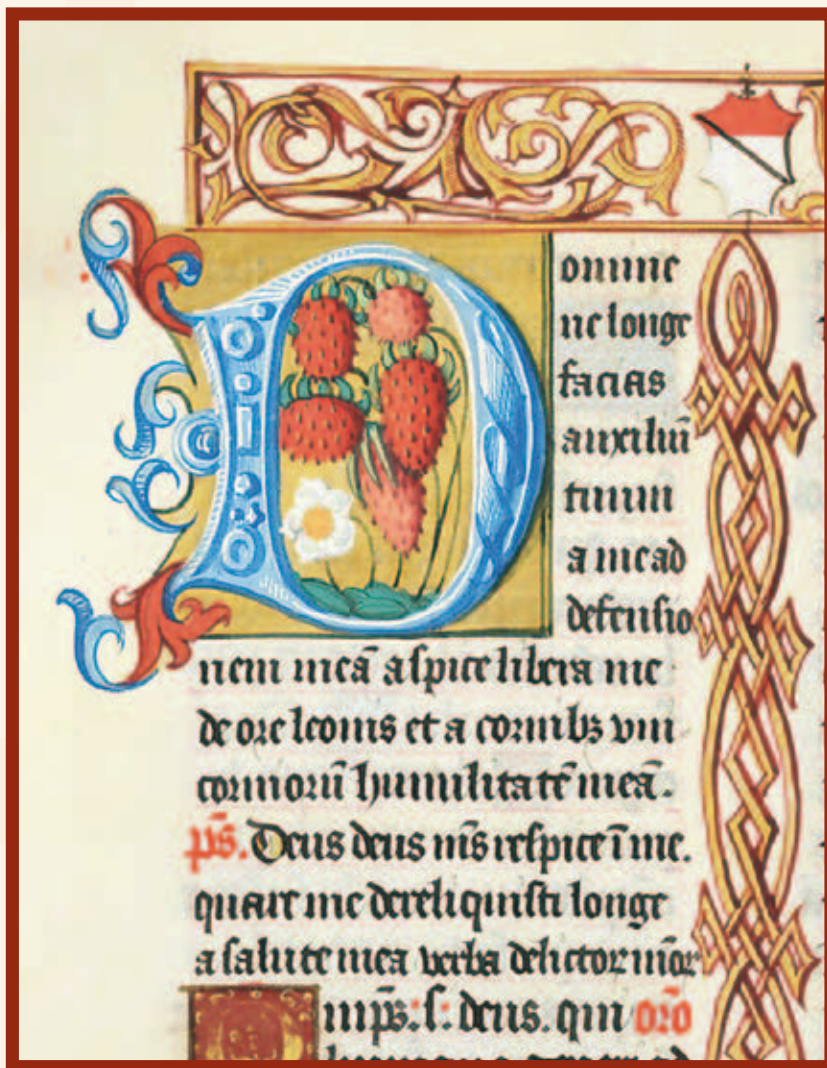 Domine
ne longe
facias
auxiliū
tuum
a me ad
defensio
nem meā aspice libera me
de ore leonis et a cornibꝫ vni
corniorū humilitatē meā.
ps̄. Deus deus ms̄ respice ī me.
quare me dereliquisti longe
a salute mea verba delictor mōr
mps̄. s. deus. qui orō